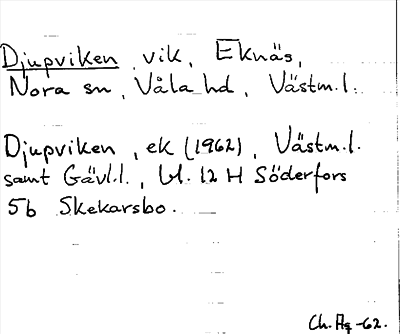 Djupviken vik, Eknäs,
Nora sn, Våla hd, Västm.l.
Djupviken, ek (1962), Västm.l.
samt Gävl.l., bl. 12 H Söderfors
5b Skekarsbo.
Ch. Hg -62.